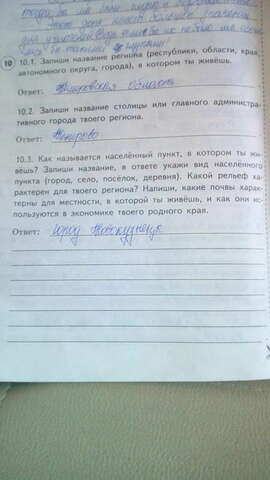 10 10.1. Запиши название региона (республики, области, края,
автономного округа, города), в котором ты живёшь.
Ответ: область
10.2. Запиши название столицы или главного администра-
тивного города твоего региона.
Ответ: Кемерово
10.3. Как называется населённый пункт, в котором ты жи-
вёшь? Запиши название, в ответе укажи вид населённого
пункта (город, село, посёлок, деревня). Какой рельеф ха-
рактерен для твоего региона? Напиши, какие почвы харак-
терны для местности, в которой ты живёшь, и как они ис-
пользуются в экономике твоего родного края.
Ответ: город Новокузнецк